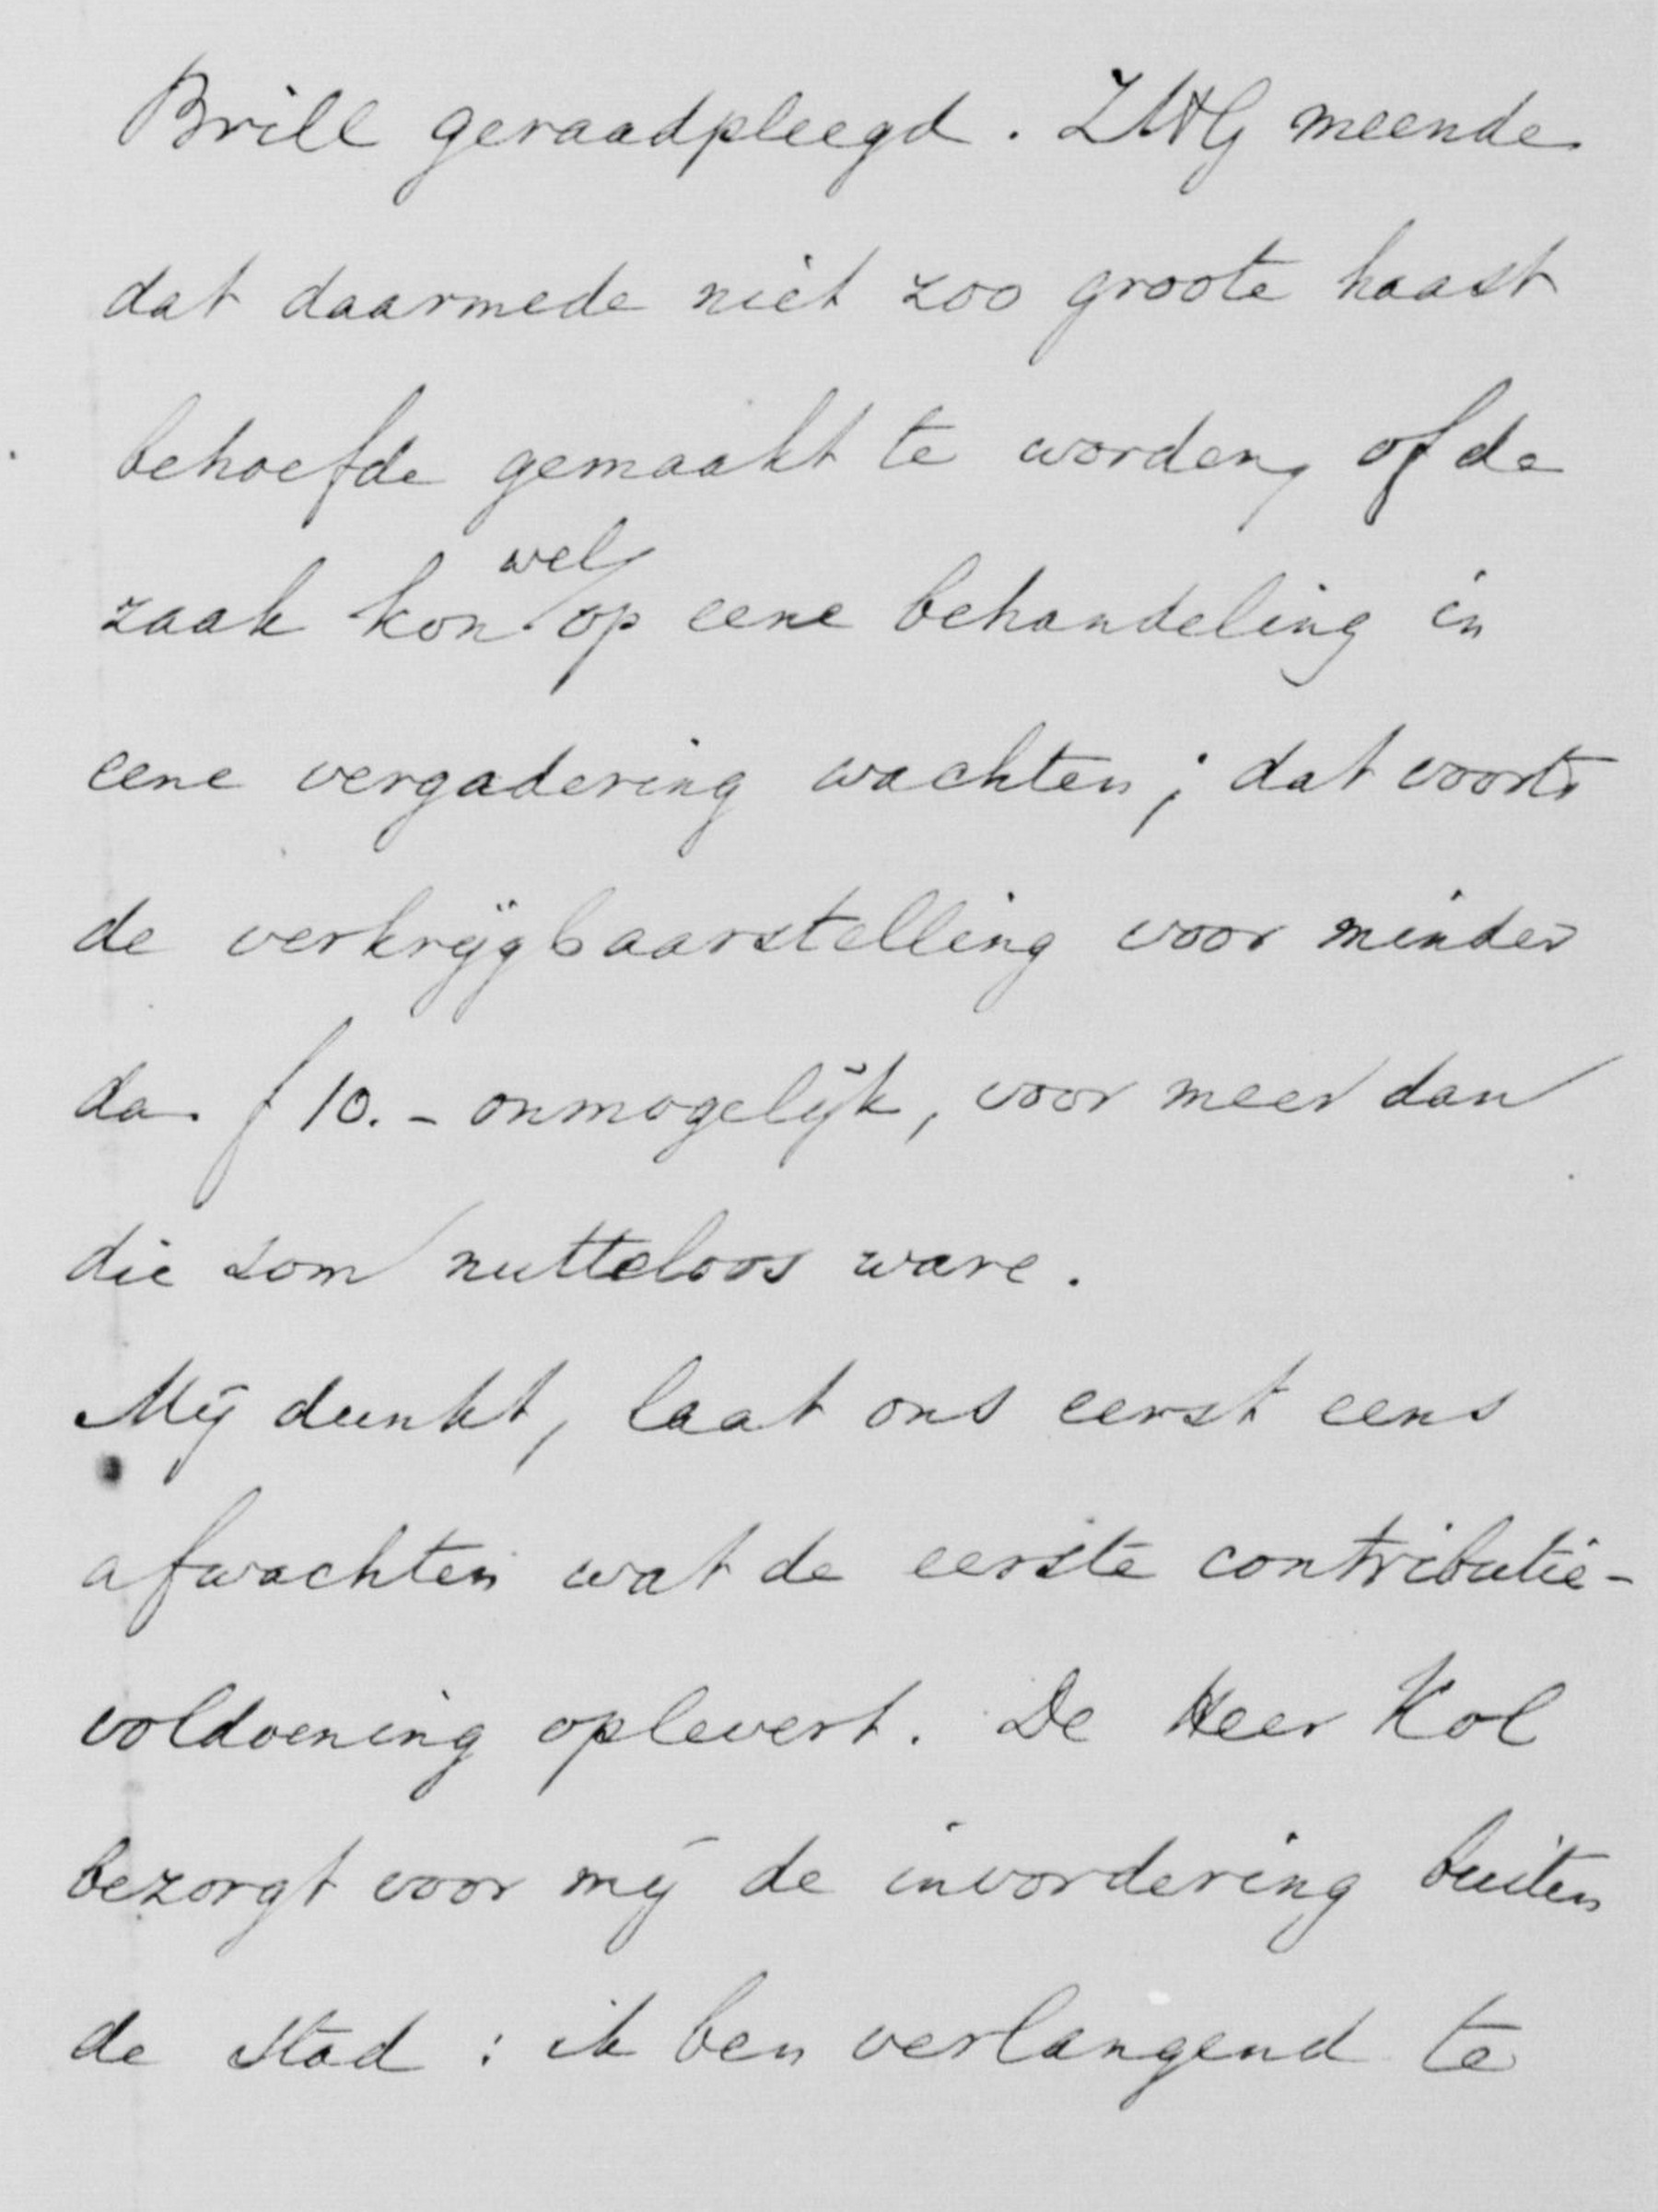 Brill geraadpleegd. ZWG meende
dat daarmede niet zoo groote haast
behoefde gemaakt te worden, of de
zaak kon wel op eene behandeling in
eene vergadering wachten; dat voorts
de verkrijgbaarstelling voor minder
dan f 10.- onmogelijk, voor meer dan
die som nutteloos ware.
Mij dunkt, laat ons eerst eens
afwachten wat de eerste contributie-
voldoening oplevert. De Heer Kol
bezorgt voor mij de invordering buiten
de stad: ik ben verlangend te